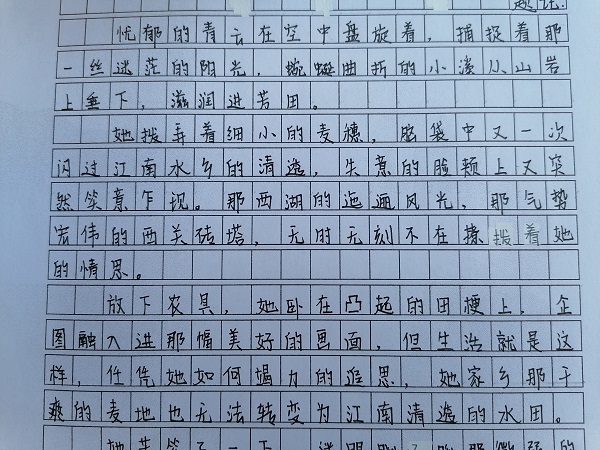 题记:
忧郁的青云在空中盘旋着,捕捉着那
一丝迷茫的阳光,蜿蜒曲折的小溪从山岩
上垂下,滋润进芳田。
她拨弄着细小的麦穗,脑袋中又一次
闪过江南水乡的清逸,失意的脸颊上又突
然笑意乍现。那西湖的迤逦风光,那气势
宏伟的西关砖塔,无时无刻不在撩拨着她
的情思。
放下农具,她卧在凸起的田梗上,企
图融入进那幅美好的画面,但生活就是这
样,任凭她如何竭力的追思,她家乡那干
爽的麦地也无法转变为江南清逸的水田。
她苦笑了一下